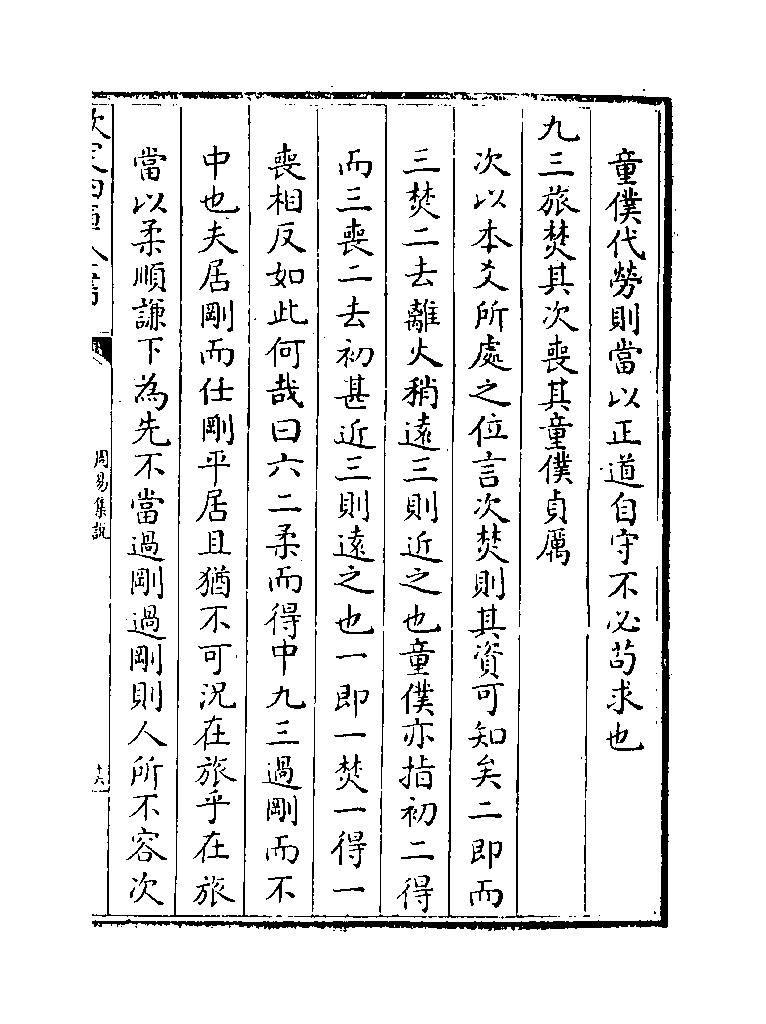 童僕代勞則當以正道自守不必茍求也
九三旅焚其次喪其童僕貞厲
次以本爻所處之位言次焚則其資可知矣二即而
三焚二去離火稍遠三則近之也童僕亦指初二得
而三喪二去初甚近三則遠之也一即一焚一得一
喪相反如此何哉曰六二柔而得中九三過剛而不
中也夫居剛而仕剛平居且猶不可況在旅乎在旅
當以柔順謙下為先不當過剛過剛則人所不容次
欽定四庫全書
周易集說
十六